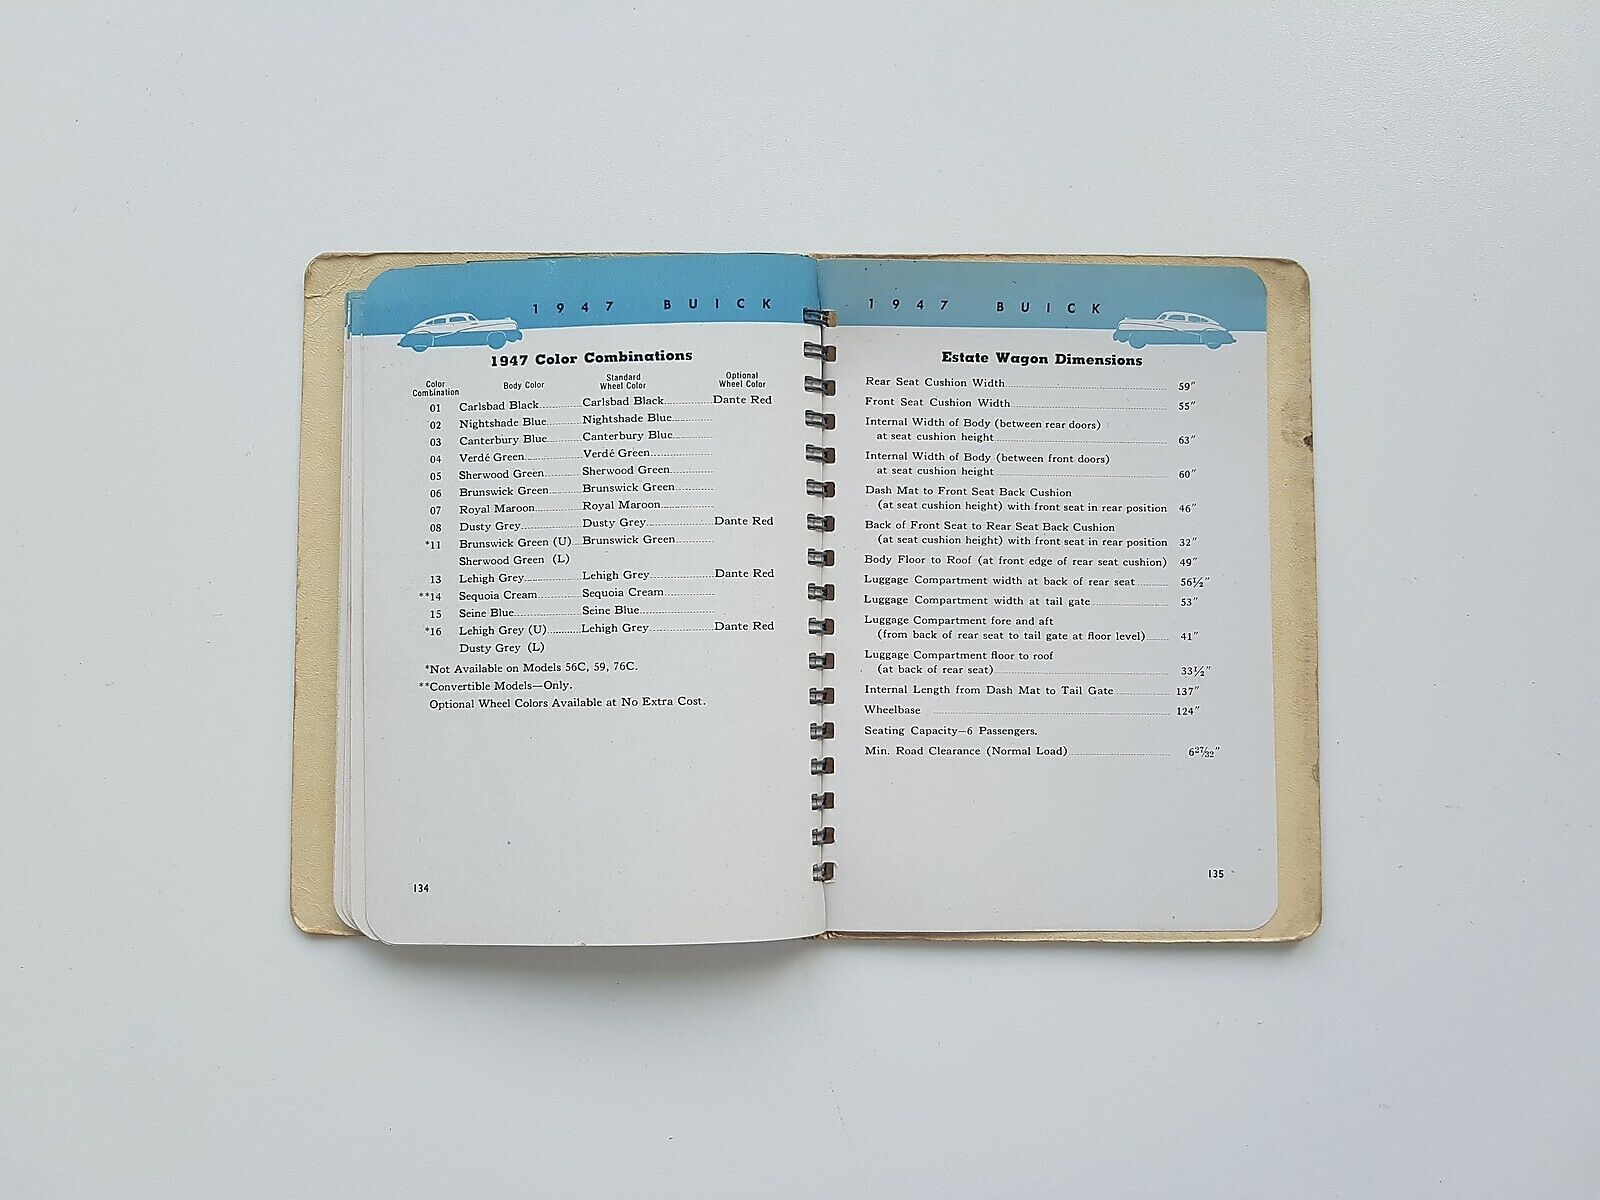 1947 BUICK
1947 Color Combinations
Color Combination Body Color Standard Wheel Color Optional Wheel Color
01 Carlsbad Black Carlsbad Black Dante Red
02 Nightshade Blue Nightshade Blue
03 Canterbury Blue Canterbury Blue
04 Verdé Green Verdé Green
05 Sherwood Green Sherwood Green
06 Brunswick Green Brunswick Green
07 Royal Maroon Royal Maroon
08 Dusty Grey Dusty Grey Dante Red
*11 Brunswick Green (U) Brunswick Green
Sherwood Green (L)
13 Lehigh Grey Lehigh Grey Dante Red
**14 Sequoia Cream Sequoia Cream
15 Seine Blue Seine Blue
*16 Lehigh Grey (U) Lehigh Grey Dante Red
Dusty Grey (L)
*Not Available on Models 56C, 59, 76C.
**Convertible Models—Only.
Optional Wheel Colors Available at No Extra Cost.
134
1947 BUICK
Estate Wagon Dimensions
Rear Seat Cushion Width 59"
Front Seat Cushion Width 55"
Internal Width of Body (between rear doors)
at seat cushion height 63"
Internal Width of Body (between front doors)
at seat cushion height 60"
Dash Mat to Front Seat Back Cushion
(at seat cushion height) with front seat in rear position 46"
Back of Front Seat to Rear Seat Back Cushion
(at seat cushion height) with front seat in rear position 32"
Body Floor to Roof (at front edge of rear seat cushion) 49"
Luggage Compartment width at back of rear seat 56½"
Luggage Compartment width at tail gate 53"
Luggage Compartment fore and aft
(from back of rear seat to tail gate at floor level) 41"
Luggage Compartment floor to roof
(at back of rear seat) 33½"
Internal Length from Dash Mat to Tail Gate 137"
Wheelbase 124"
Seating Capacity—6 Passengers.
Min. Road Clearance (Normal Load) 6 27/32"
135